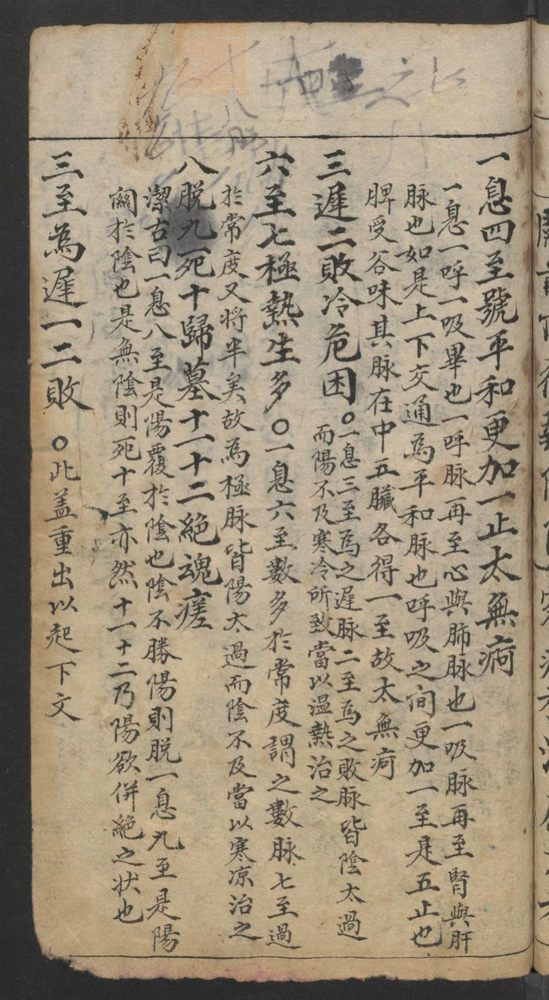 一息四至號平和更加一止太無疴
一息一呼一吸畢也一呼脉再至心與肺脉也一吸脉再至腎與肝
脉也如是上下交通為平和脉也呼吸之间更加一至是五止也
脾受谷味其脉在中五臓各得一至故太無疴
三遲二敗冷危困○一息三至為之遲脉二至為之敗脉皆陰太過
而陽不及寒冷所致當以温熱治之
六至七極熱生多○一息六至數多於常度謂之數脉七至過
於常度又將半矣故為極脉皆陽太過而陰不及當以寒凉治之
八脱九死十歸墓十一十二絶魂瘥
潔古曰一息八至是陽覆於陰也陰不勝陽則脱一息九至是陽
闕於陰也是無陰則死十至亦然十一十二乃陽欲併絶之状也
三至為遲一二敗○此盖重出以起下文